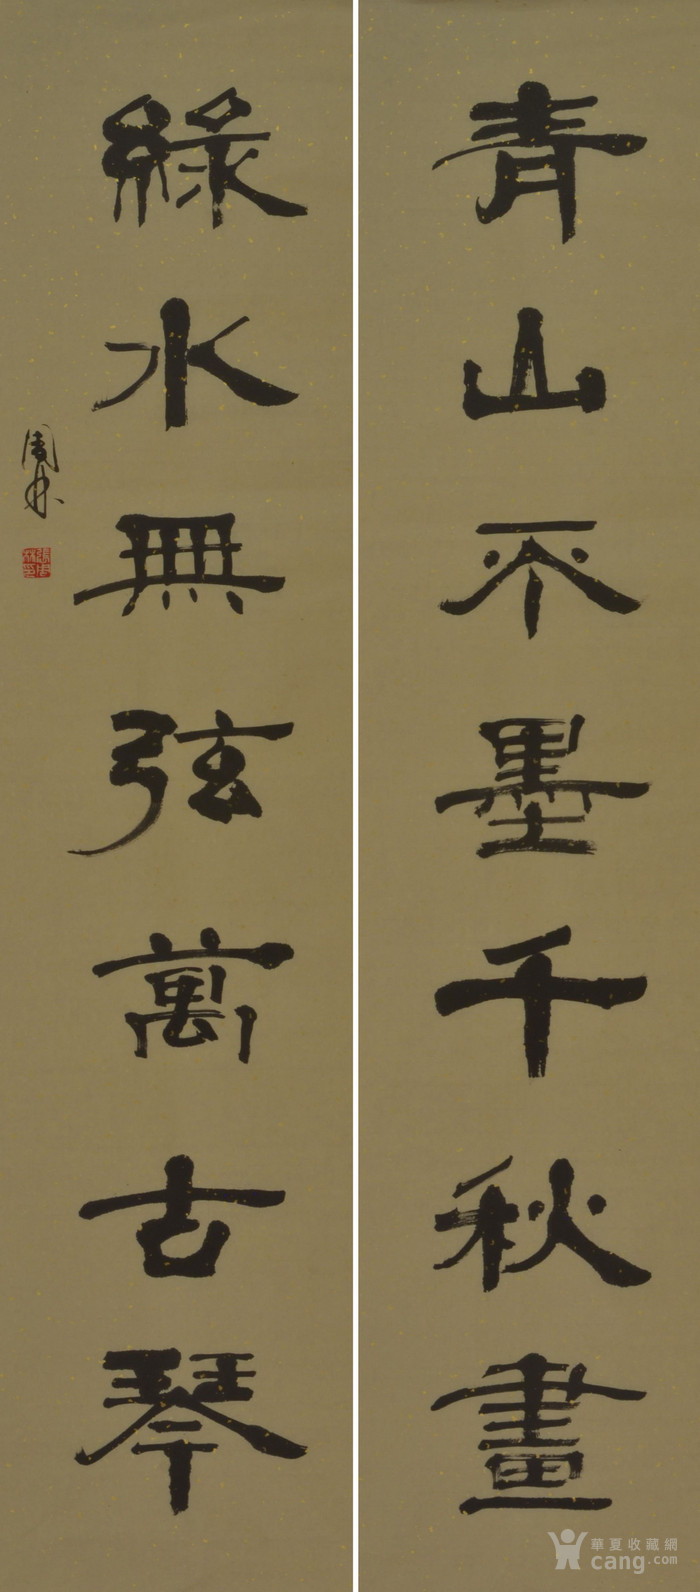 青山不墨千秋畫
綠水無弦萬古琴
周林
華夏收藏網
cang.com